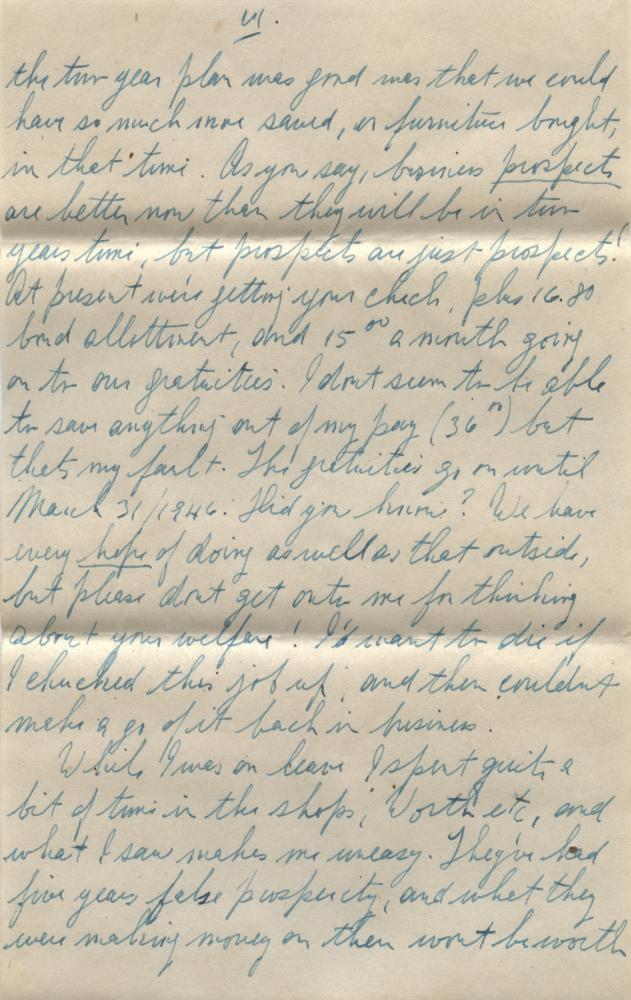 VI.
the two year plan was good was that we could
have so much more saved, or furniture bought,
in that time. As you say, business prospects
are better now than they will be in two
years time, but prospects are just prospects!
At present we're getting your check, plus 16.80
bond allottment, and 15⁰⁰ a month going
on to our gratuities. I dont seem to be able
to save anything out of my pay (36⁰⁰) but
thats my fault. The gratuities go on until
March 31/1946. Did you know? We have
every hope of doing as well as that outside,
but please dont get onto me for thinking
about your welfare! I'd want to die if
I chucked this job up, and then couldnt
make a go of it back in business.
While I was on leave I spent quite a
bit of time in the shops, Worth etc, and
what I saw makes me uneasy. They've had
five years false prosperity, and what they
were making money on then wont be worth